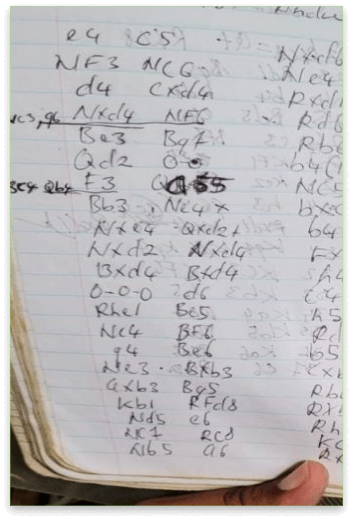 e4 C5
NF3 NC6 Nxdb
d4 Cxd4 Ne4
Nxd4 NF6 Rxd
Nc3, g6 Rd6
Be3 Bg7 Rb
Qd2 0-0 b4
F3 NC5
Bc4 Qb6 bxc
Bb3 Ne4x b4
Nxe4 Qxd2x
Nxd2 Nxd4 h4
Bxd4 Bxd4
0-0-0 d6 h5
Rhe1 Be5 Rd
Nc4 BF6 b5
g4 Be6
Ne3 Bxb3
axb3 Bg5 Rb
Kb1 RFd8 Rx
Nd5 e6 Rh
NC7 RC8 KC
Nb5 a6 Rx